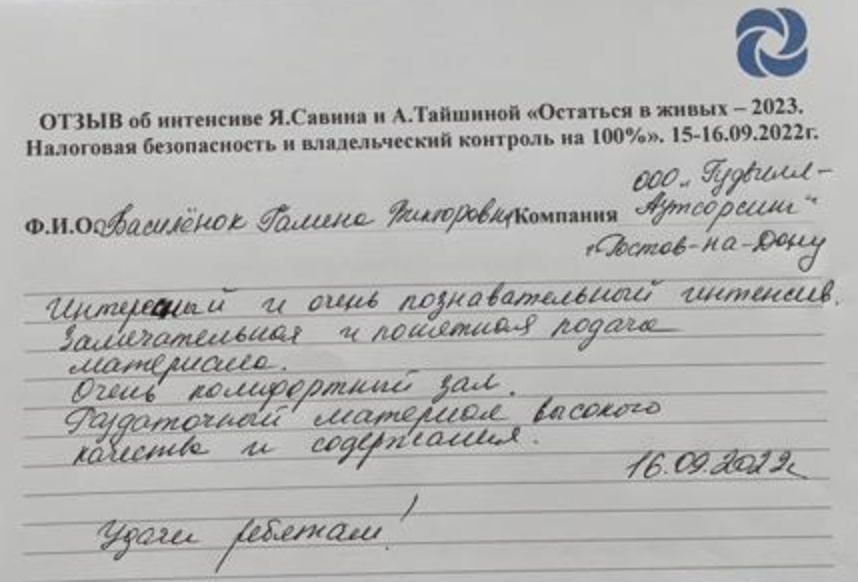 ОТЗЫВ об интенсиве Я.Савина и А.Тайшиной «Остаться в живых – 2023.
Налоговая безопасность и владельческий контроль на 100%». 15-16.09.2022г.
Ф.И.О. Василёнок Галина Викторовна Компания ООО „Гудвилл-
Аутсорсинг“
г. Ростов-на-Дону
Интересный и очень познавательный интенсив.
Замечательная и понятная подача
материала.
Очень комфортный зал.
Раздаточный материал высокого
качества и содержания.
16.09.2022г.
Удачи ребятам!